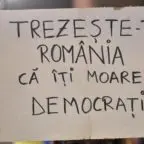 TREZEȘTE-T
ROMÂNIA
CĂ ÎȚI MOARE
DEMOCRAȚI